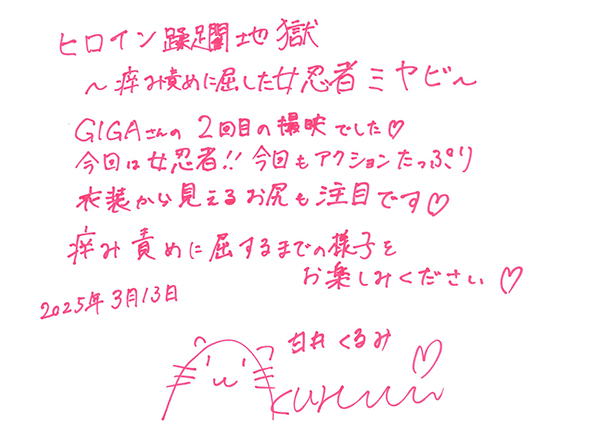 ヒロイン蹂躙地獄
～痒み責めに屈した女忍者ミヤビ～
GIGAさんの 2回目の撮映でした♡
今回は女忍者!! 今回もアクションたっぷり
衣装から見えるお尻も注目です♡
痒み責めに屈するまでの様子を
お楽しみください♡
2025年3月13日
くるみ